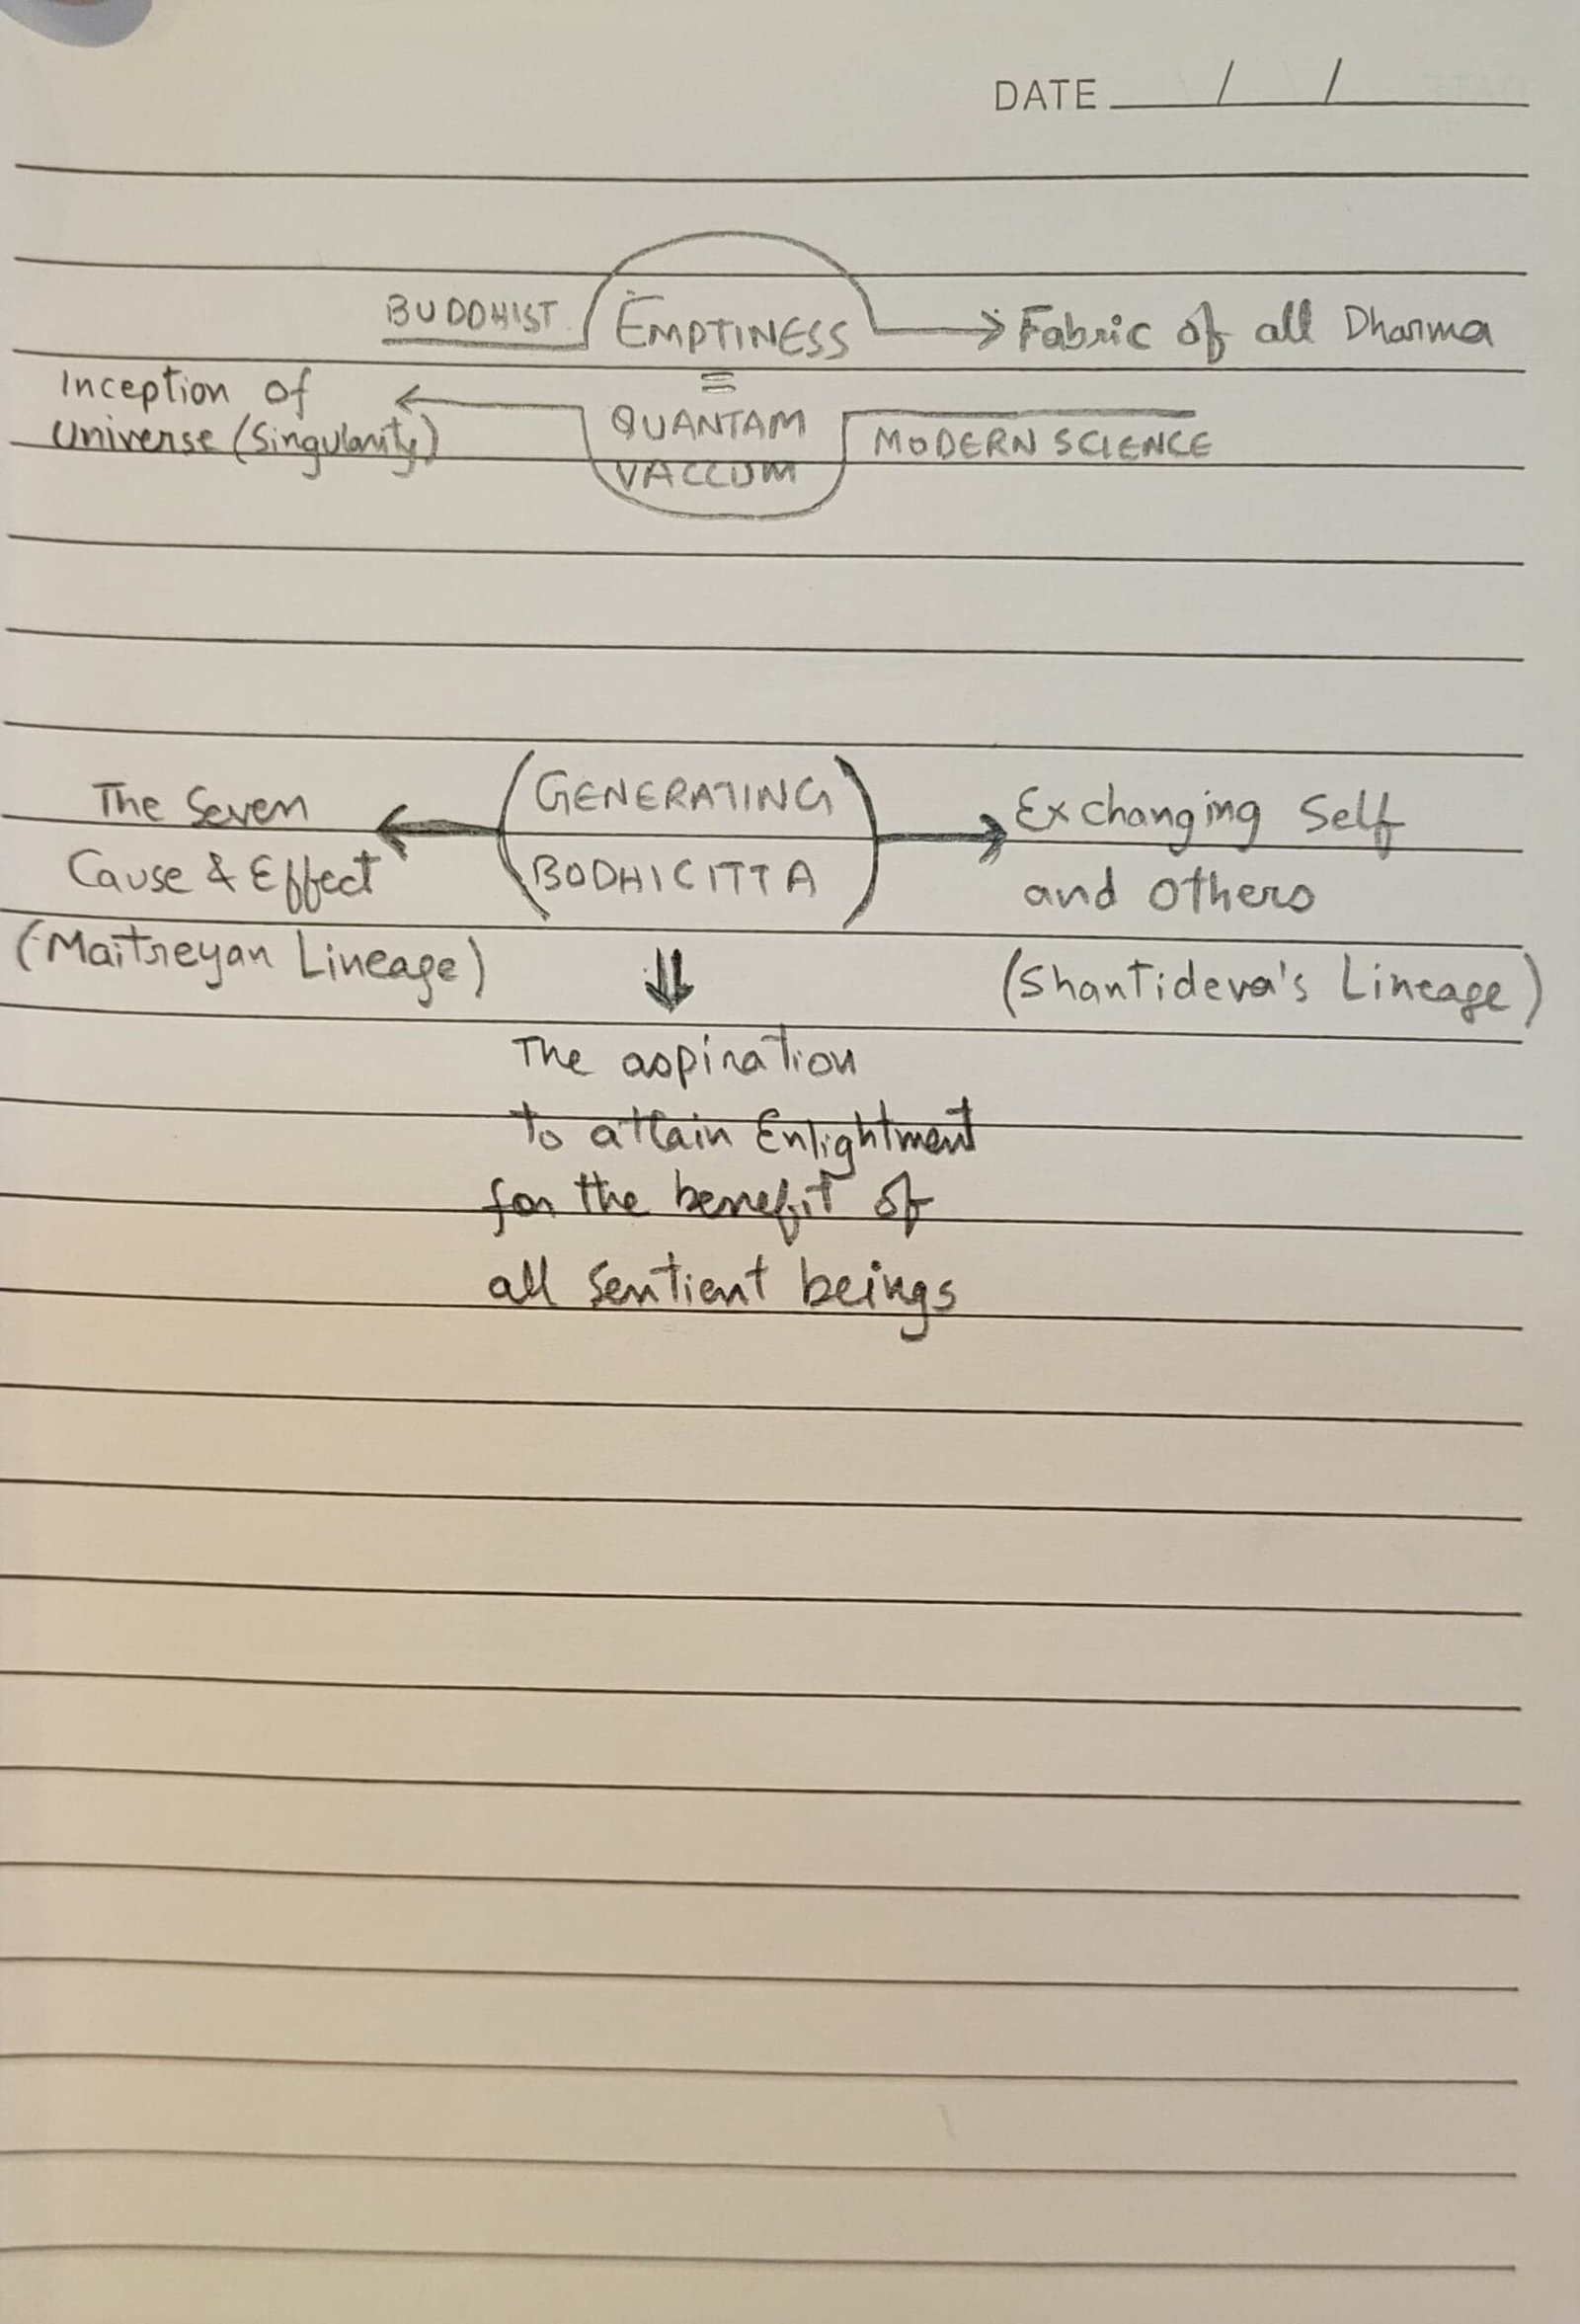 DATE / /
BUDDHIST EMPTINESS → Fabric of all Dharma
=
Inception of
Universe (Singularity) ← QUANTAM MODERN SCIENCE
VACCUM
The Seven ← GENERATING → Exchanging Self
Cause & Effect BODHICITTA and others
(Maitreyan Lineage) ⇓ (Shantideva's Lineage)
The aspiration
to attain Enlightment
for the benefit of
all Sentient beings